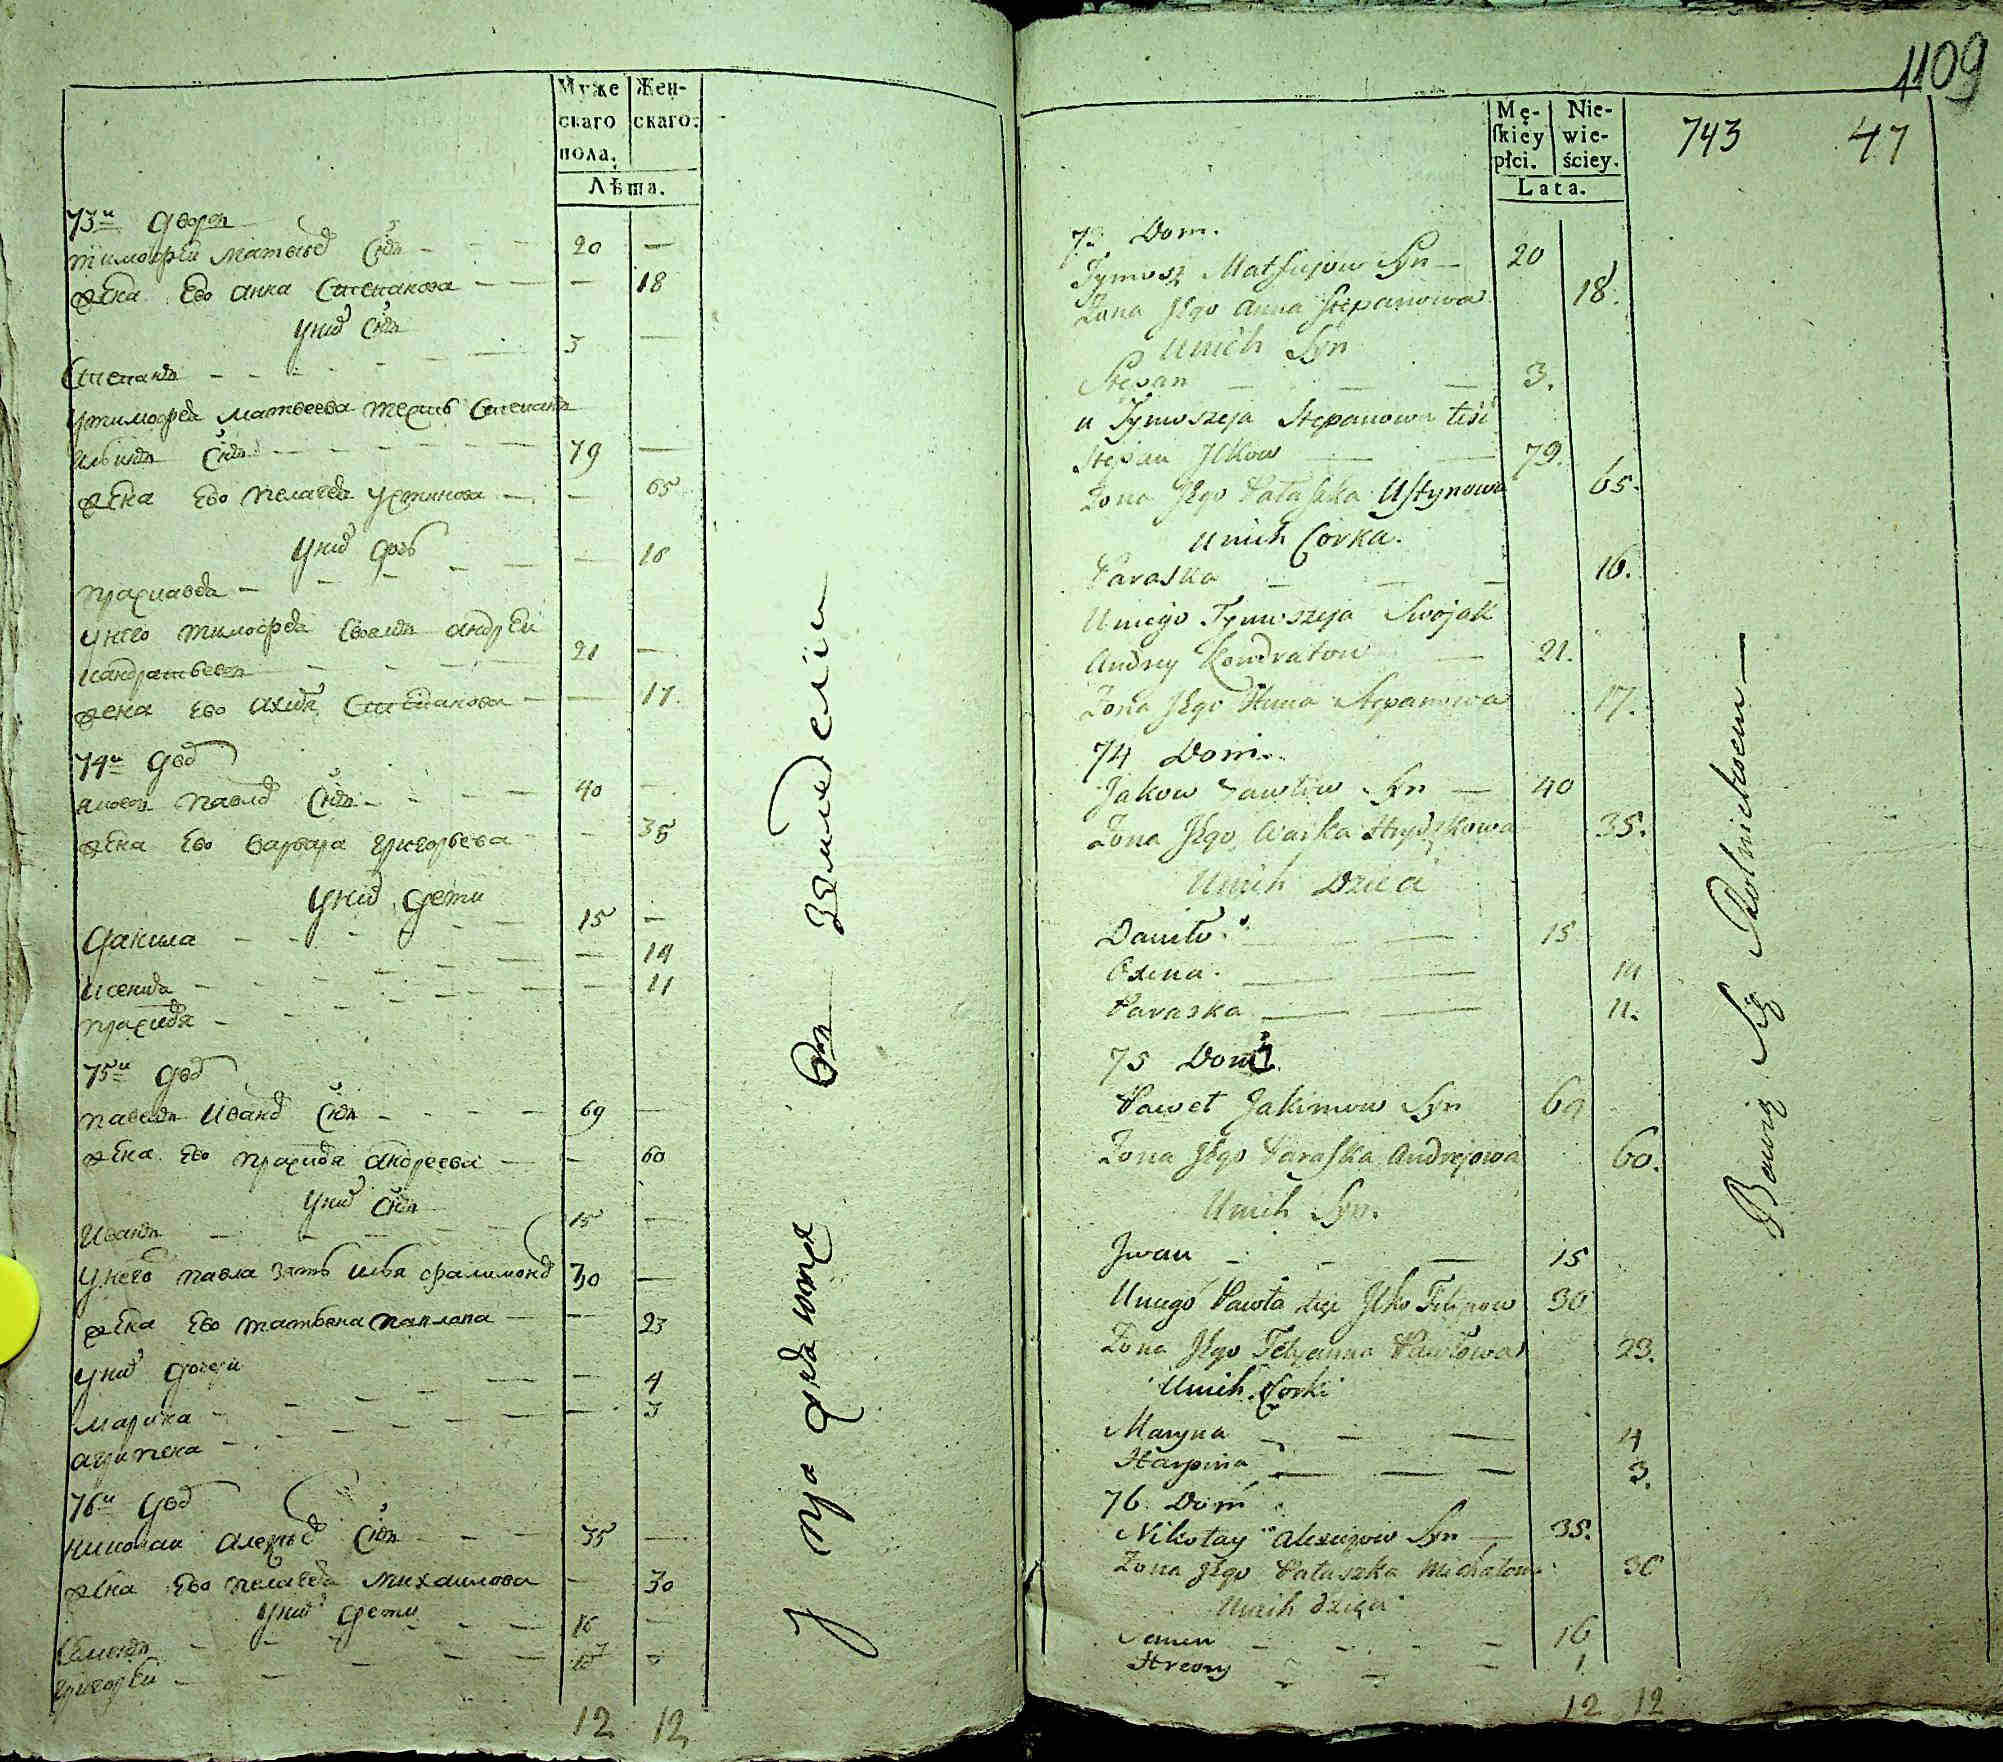 Муже
скаго
пола.
Жен-
скаго.
Лѣта.
73й Дворъ
Тимофеи Матвеевъ Сынъ 20 —
жена Ево Анна Степанова — 18
У них Сынъ
Степанъ 3 —
У Тимофея Матвеева тесть Степанъ
Ильинъ Сынъ 79 —
жена Ево Пелагея Устинова — 65
У них дочь
Прасковея — 16
У него Тимофея своякъ Андреи
Кандратьевъ 21 —
жена Ево Степанова — 17
74й Двор
Яковъ Павловъ Сынъ 40 —
жена Ево Варвара Григорьева — 35
У них дети
Данила 15 —
— 14
— 11
75й Двор
Павелъ Иванов Сынъ 69 —
жена Ево Андреева — 60
У них Сынъ
Иванъ 15 —
У него Павла зять Илья Филимонов 30 —
жена Ево Татьяна Павлова — 23
У них дочери
Марина — 4
Агрипена — 3
76й Двор
Николаи Алексеев Сынъ 35 —
жена Ево Пелагея Михаилова — 30
У них дети
Семенъ 16 —
Григореи
12 12
Упражняются в земледелии
1109
743 47
Mę-
skiey
płci.
Nie-
wie-
ściey.
Lata.
73 Dom.
Tymosz Matfiejow Syn — 20
Żona Jego Anna Stepanowa 18.
Unich Syn
Stepan — 3.
u Tymoszeja Stepanowa teść
Stepan Jlkow — 79.
Żona Jego Pałaszka Ustynowa 65.
Unich Corka.
Paraska — 16.
Uniego Tymoszeja Swojak
Andrey Kondratow — 21.
Żona Jego Stepanowa 17.
74 Dom.
Jakow Pawłow Syn — 40
Żona Jego Warka Hryszkowa 35.
Unich Dzieci
Daniło. 15
Oxena. 14
Paraska 11.
75 Dom
Paweł Jakimow Syn 69
Żona Jego Paraska Andrejowa 60.
Unich Syn.
Jwan 15
Uniego Pawła zięć Jlko Filipow 30
Żona Jego Tetyanna Pawłowa 23.
Unich Corki
Maryna 4
Harpina 3.
76 Dom
Nikołay Alexiejow Syn — 35.
Żona Jego Pałaszka Michałowa 30
Unich dzieci
Semen 16
Hreory 1
12 12
Bawią Się Rolnictwem —